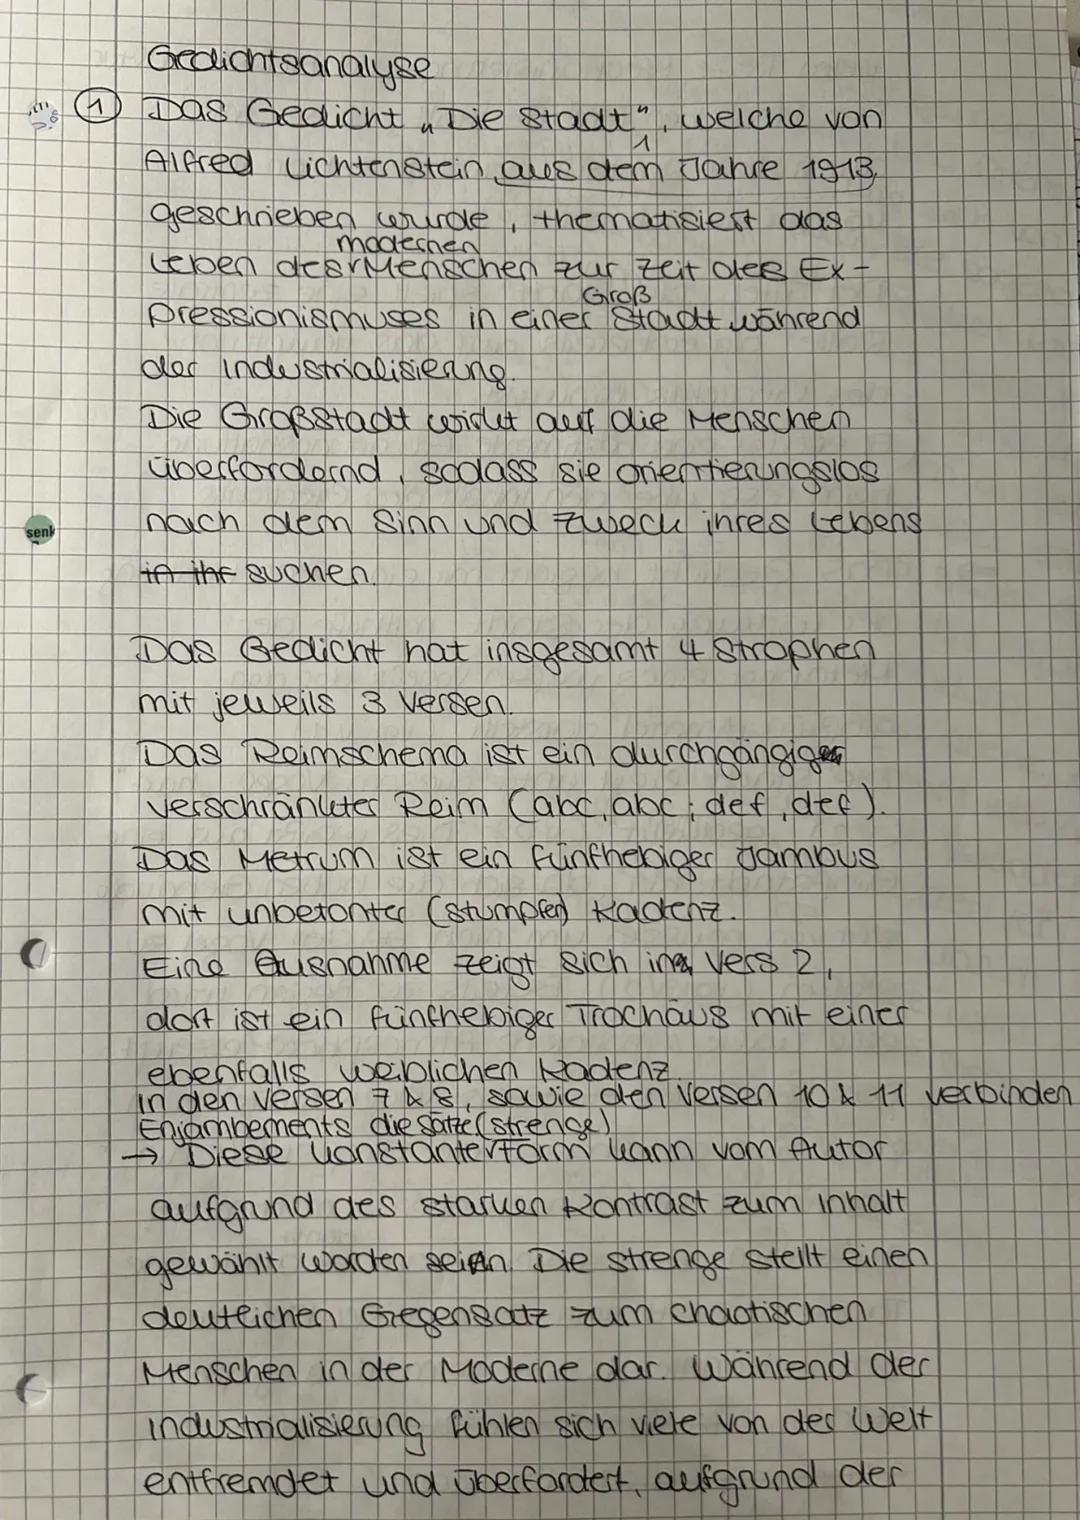 Gedichtsanalyse
1 Das Gedicht „Die Stadt", welche von
Alfred Lichtenstein aus dem Jahre 1913
geschrieben wurde, thematisiest das
modernen
Leben des Menschen zur Zeit des Ex-
Groß
pressionismuses in einer Stadt während
der Industrialisierung.
Die Großstadt wirkt auf die Menschen
überfordernd, sodass sie orientierungslos
nach dem Sinn und Zweck ihres Lebens
in ihr suchen.
senk
Das Gedicht hat insgesamt 4 Strophen
mit jeweils 3 Versen.
Das Reimschema ist ein durchgängiger
verschränkter Reim (abc, abc; def, def).
Das Metrum ist ein fünfhebiger Jambus
mit unbetonter (stumpfen) Kadenz.
Eine Ausnahme zeigt sich in Vers 2,
dort ist ein fünfhebiger Trochäus mit einer
ebenfalls weiblichen Kadenz.
In den Versen 7 & 8, sowie den Versen 10 & 11 verbinden
Enjambements die Sätze (strenge)
→ Diese konstante Form kann vom Autor
aufgrund des starken Kontrast zum Inhalt
gewählt worden sein. Die Strenge stellt einen
deutlichen Gegensatz zum chaotischen
Menschen in der Moderne dar. Während der
Industrialisierung fühlen sich viele von der Welt
entfremdet und überfordert, aufgrund der